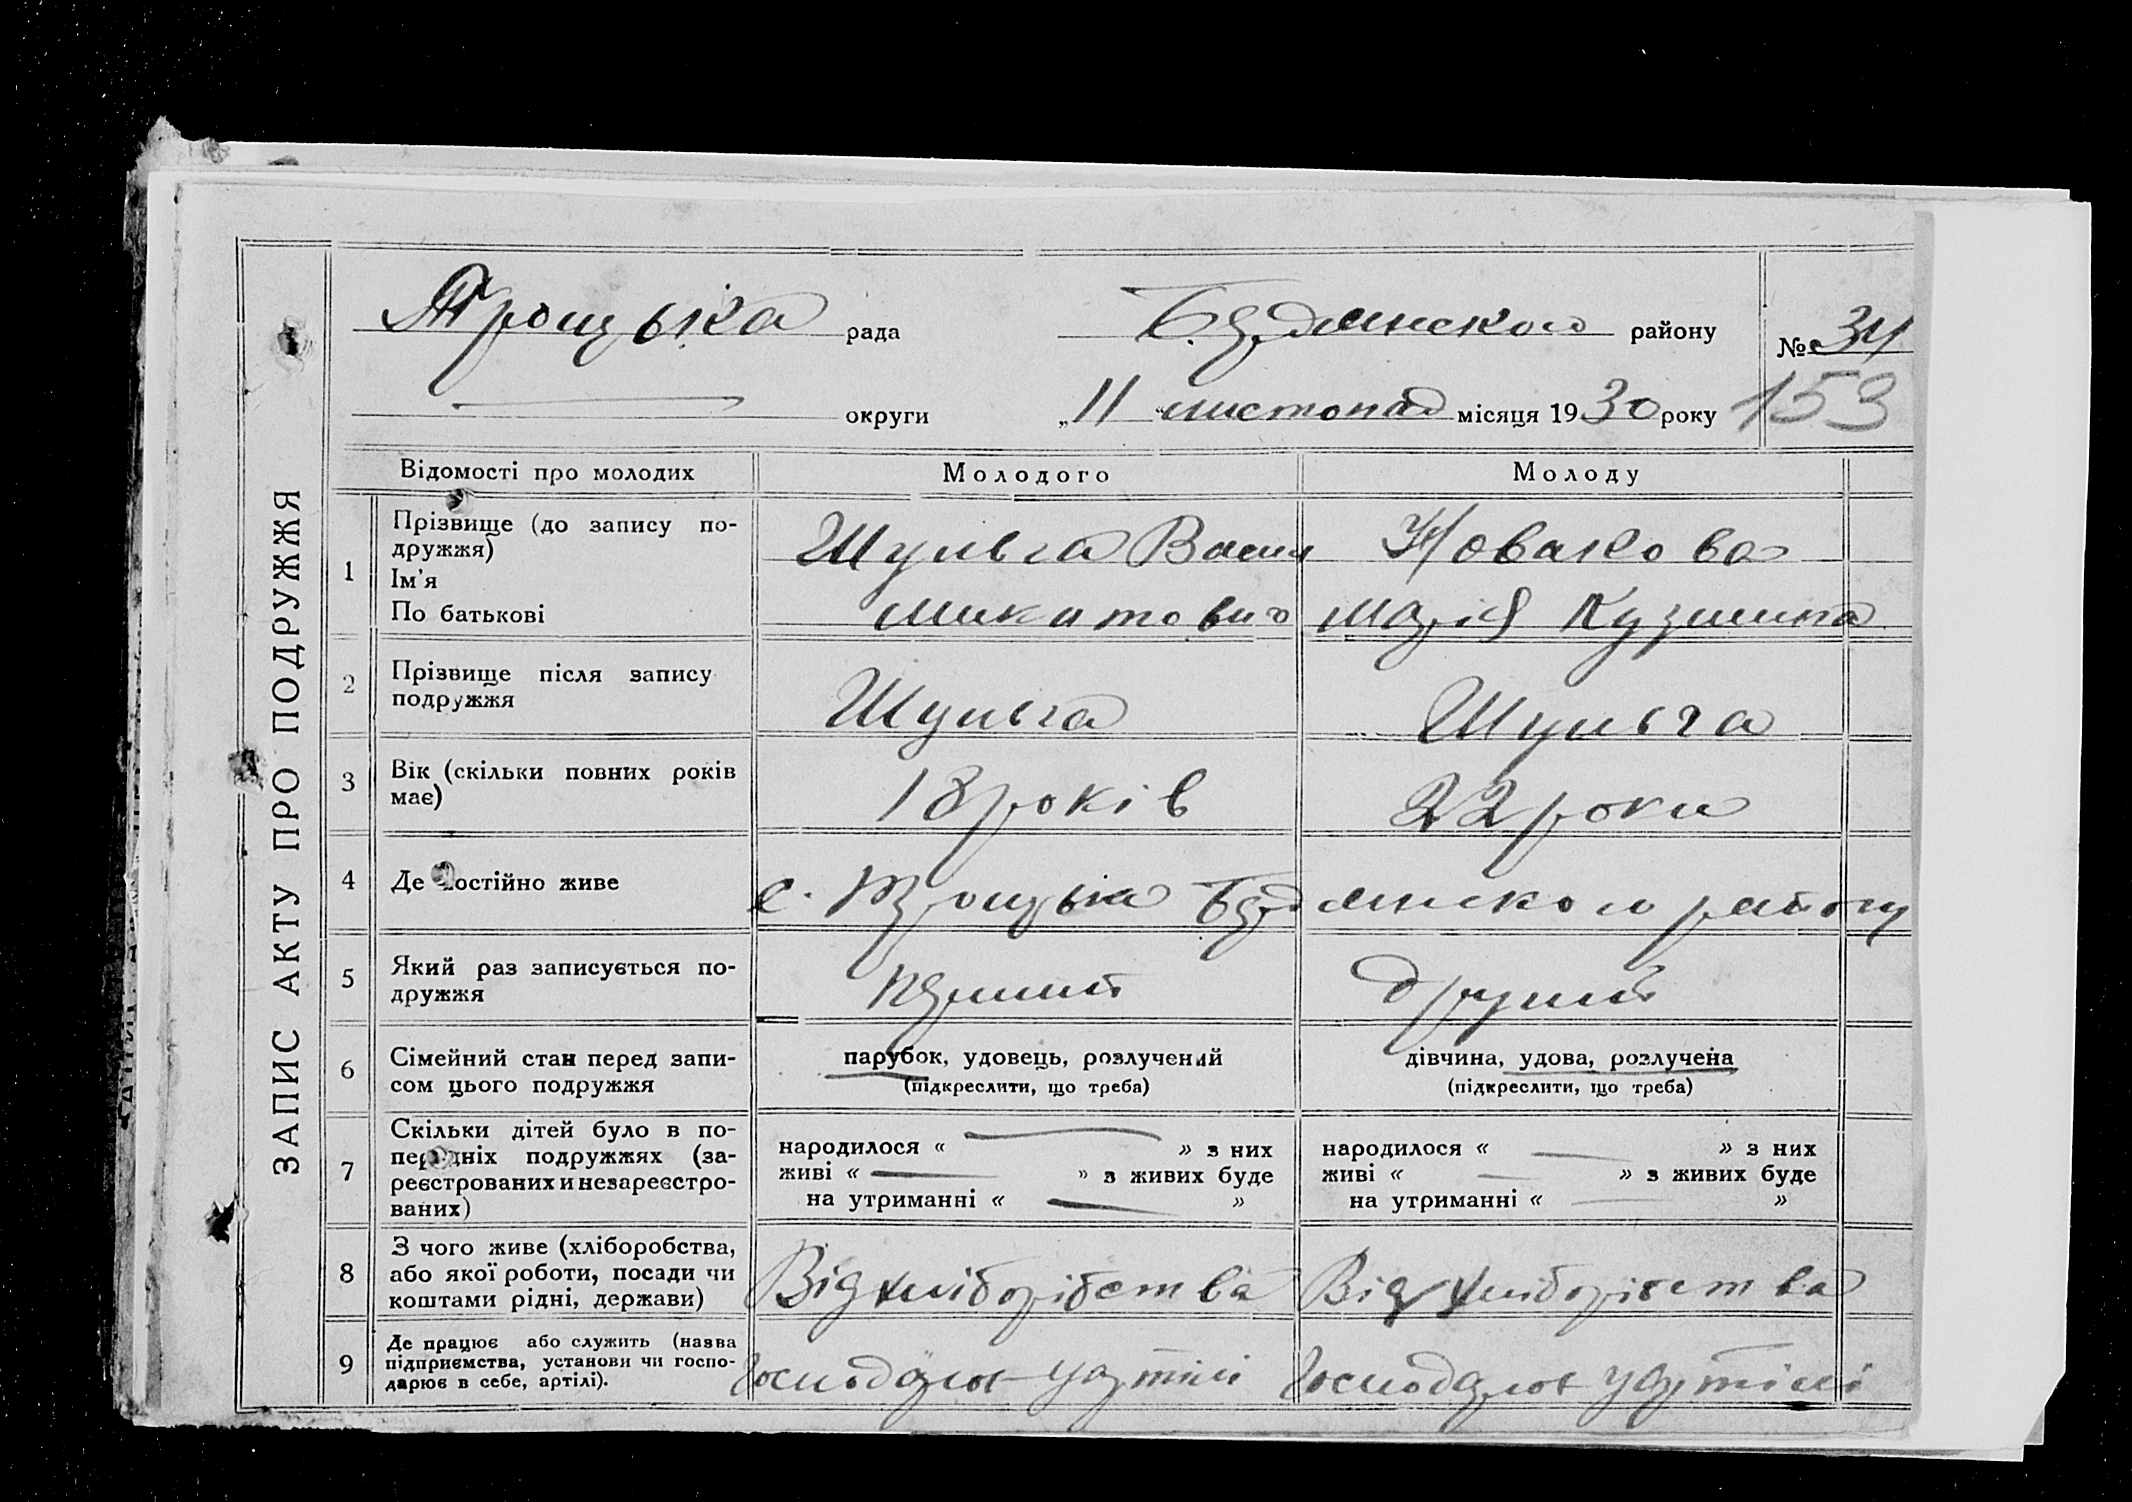 ЗАПИС АКТУ ПРО ПОДРУЖЖЯ
Троцька рада Будянского району № 34
округи „11“ листопад місяця 1930 року 153
Відомості про молодих Молодого Молоду
1 Прізвище (до запису по-
дружжя)
Ім'я
По батькові
Шульга Васил
Микитович
Новакова
Марія Кузминна
2 Прізвище після запису
подружжя
Шульга Шульга
3 Вік (скільки повних років
має)
18 років 22 роки
4 Де постійно живе с. Троцька Будянского району
5 Який раз записується по-
дружжя
перший другий
6 Сімейний стан перед запи-
сом цього подружжя
парубок, удовець, розлучений
(підкреслити, що треба)
дівчина, удова, розлучена
(підкреслити, що треба)
7 Скільки дітей було в по-
передніх подружжях (за-
реєстрованих и незареєстро-
ваних)
народилося « » з них
живі « » з живих буде
на утриманні « »
народилося « » з них
живі « » з живих буде
на утриманні « »
8 З чого живе (хліборобства,
або якої роботи, посади чи
коштами рідні, держави)
Від хліборібства Від хліборібства
9 Де працює або служить (назва
підприємства, установи чи госпо-
дарює в себе, артілі).
Господарює у артілі Господарює у артілі